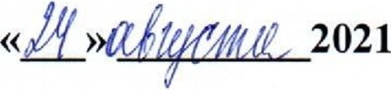 «24» августа 2021